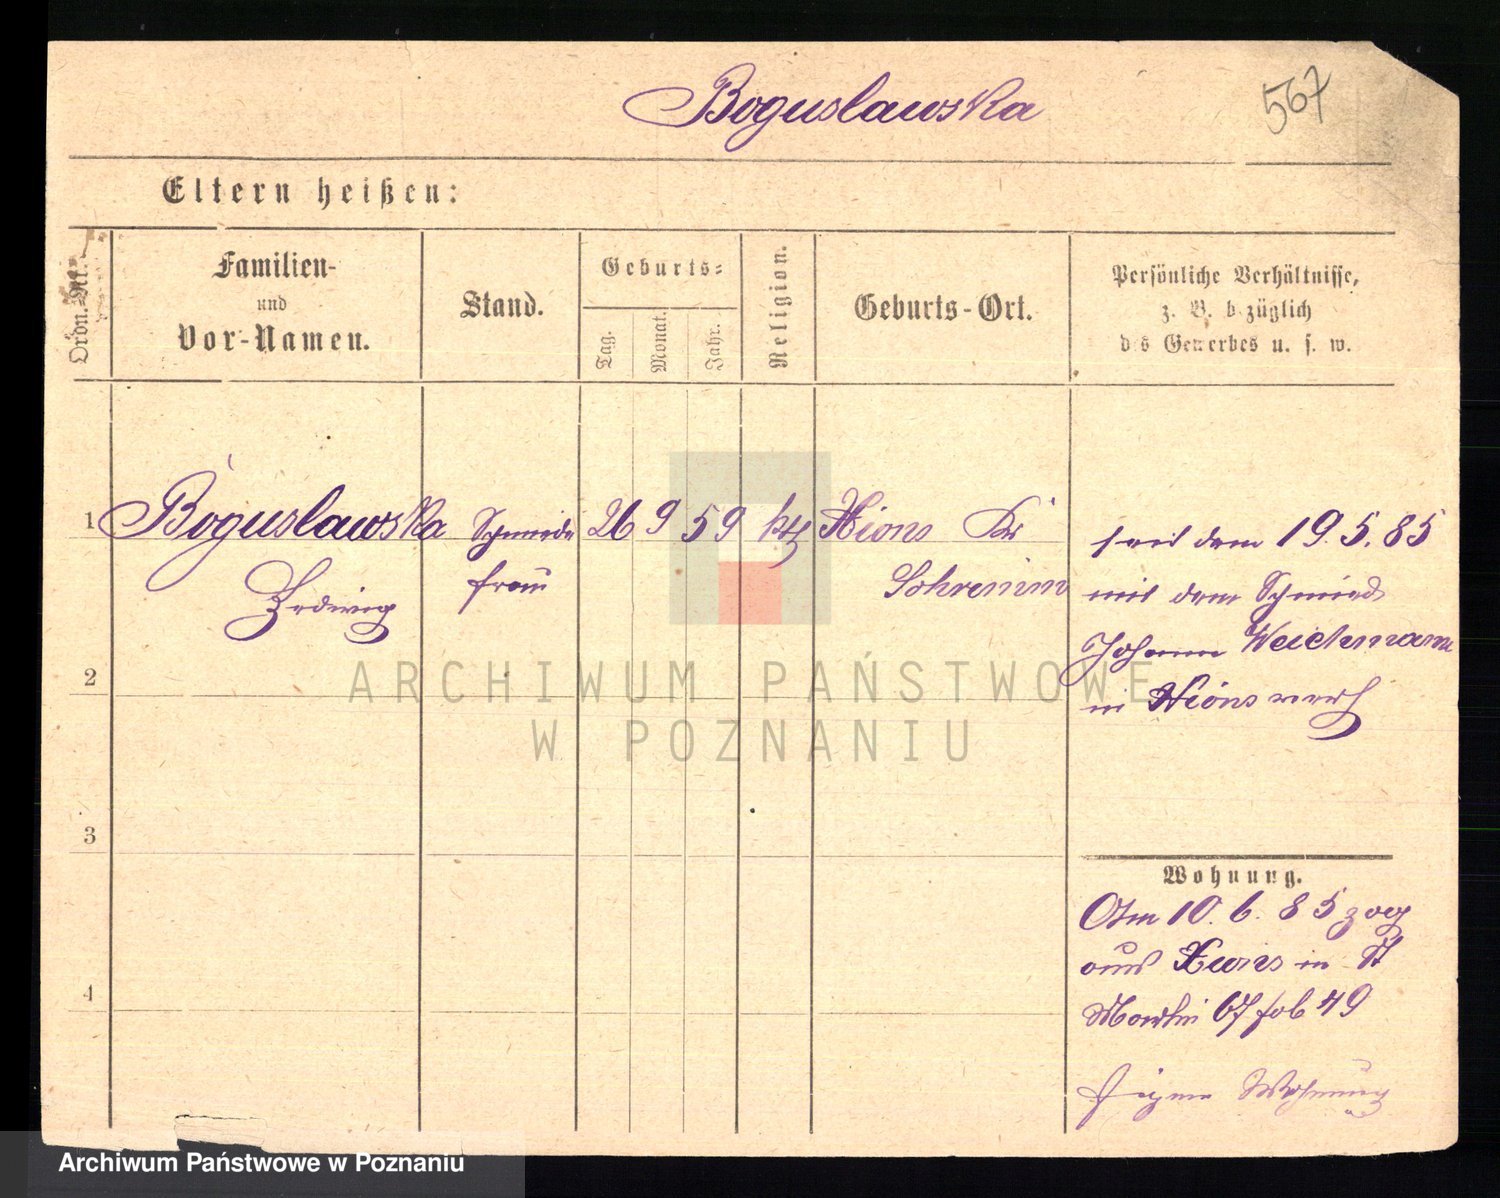 Boguslawska
567
Eltern heißen:
Ordn.-Nr.
Familien-
und
Vor-Namen.
Stand.
Geburts-
Tag.
Monat.
Jahr.
Religion.
Geburts-Ort.
Persönliche Verhältnisse,
z. B. bezüglich
des Gewerbes u. s. w.
1 Boguslawska Schmiede 26 9 59 kth Xions Kr
Hedwig frau Schrimm
seit dem 19 5. 85
mit dem Schmied
Johann Weichmann
in Xions verh
2
3
4
Wohnung.
Am 10. 6. 85 zog
aus Xions in St
Martin 67 fol 49
Eigene Wohnung
ARCHIWUM PAŃSTWOWE
W POZNANIU
Archiwum Państwowe w Poznaniu